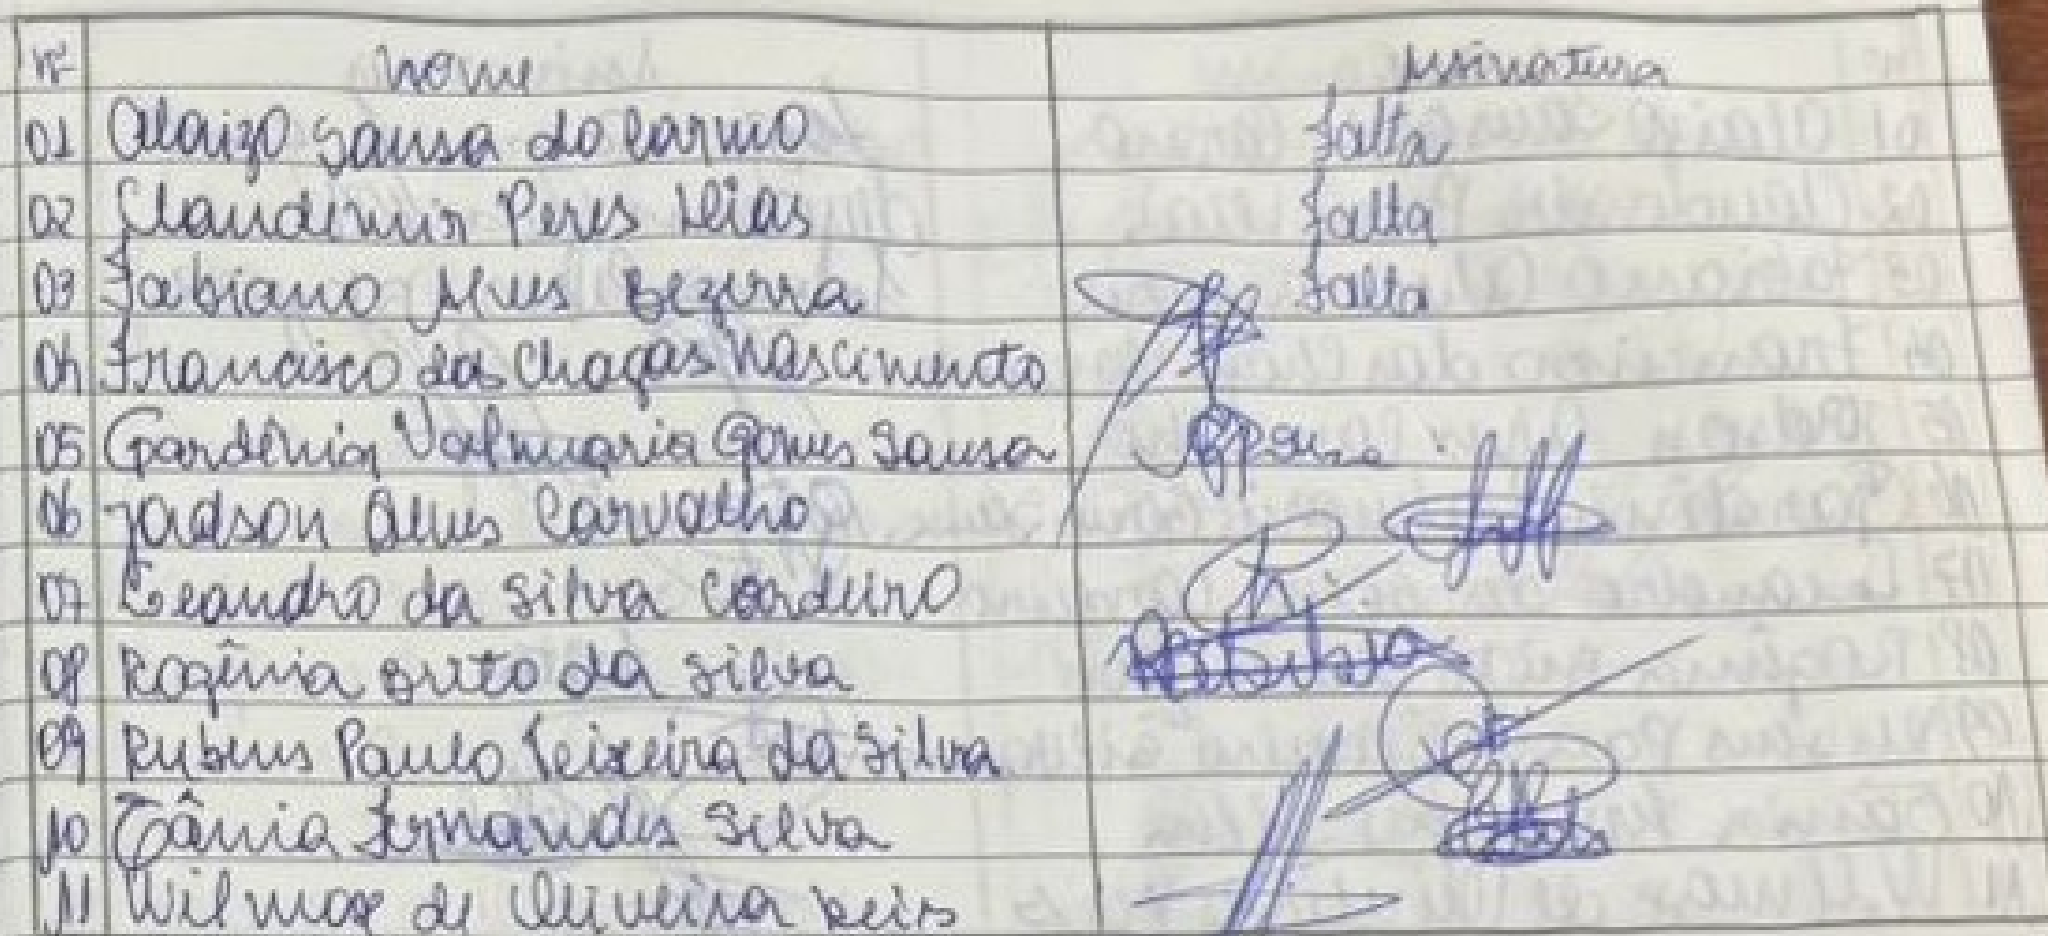 Nº Nome Assinatura
01 Olaizo Sousa do Carmo Falta
02 Claudemir Peres Dias Falta
03 Fabiano Alves Bezerra Falta
04 Francisco das Chagas Nascimento
05 Gardênia Valmaria Gomes Sousa
06 Jadson Alves Carvalho
07 Leandro da Silva Cordeiro
08 Rogênia Brito da Silva
09 Rubens Paulo Teixeira da Silva
10 Tânia Fernandes Silva
11 Wilmar de Oliveira Reis